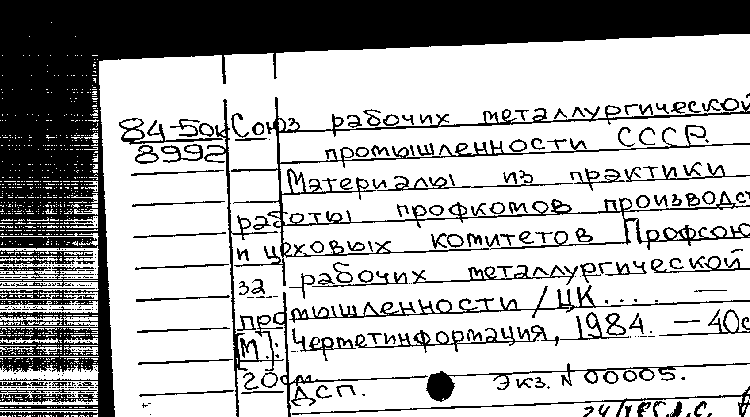 84-5ок Союз рабочих металлургической
8992 промышленности СССР.
Материалы из практики
работы профкомов производст
и цеховых комитетов Профсою
за рабочих металлургической
промышленности / ЦК.... —
[М.]: Черметинформация, 1984. — 40с
20см
ДСП. Экз. N 00005.